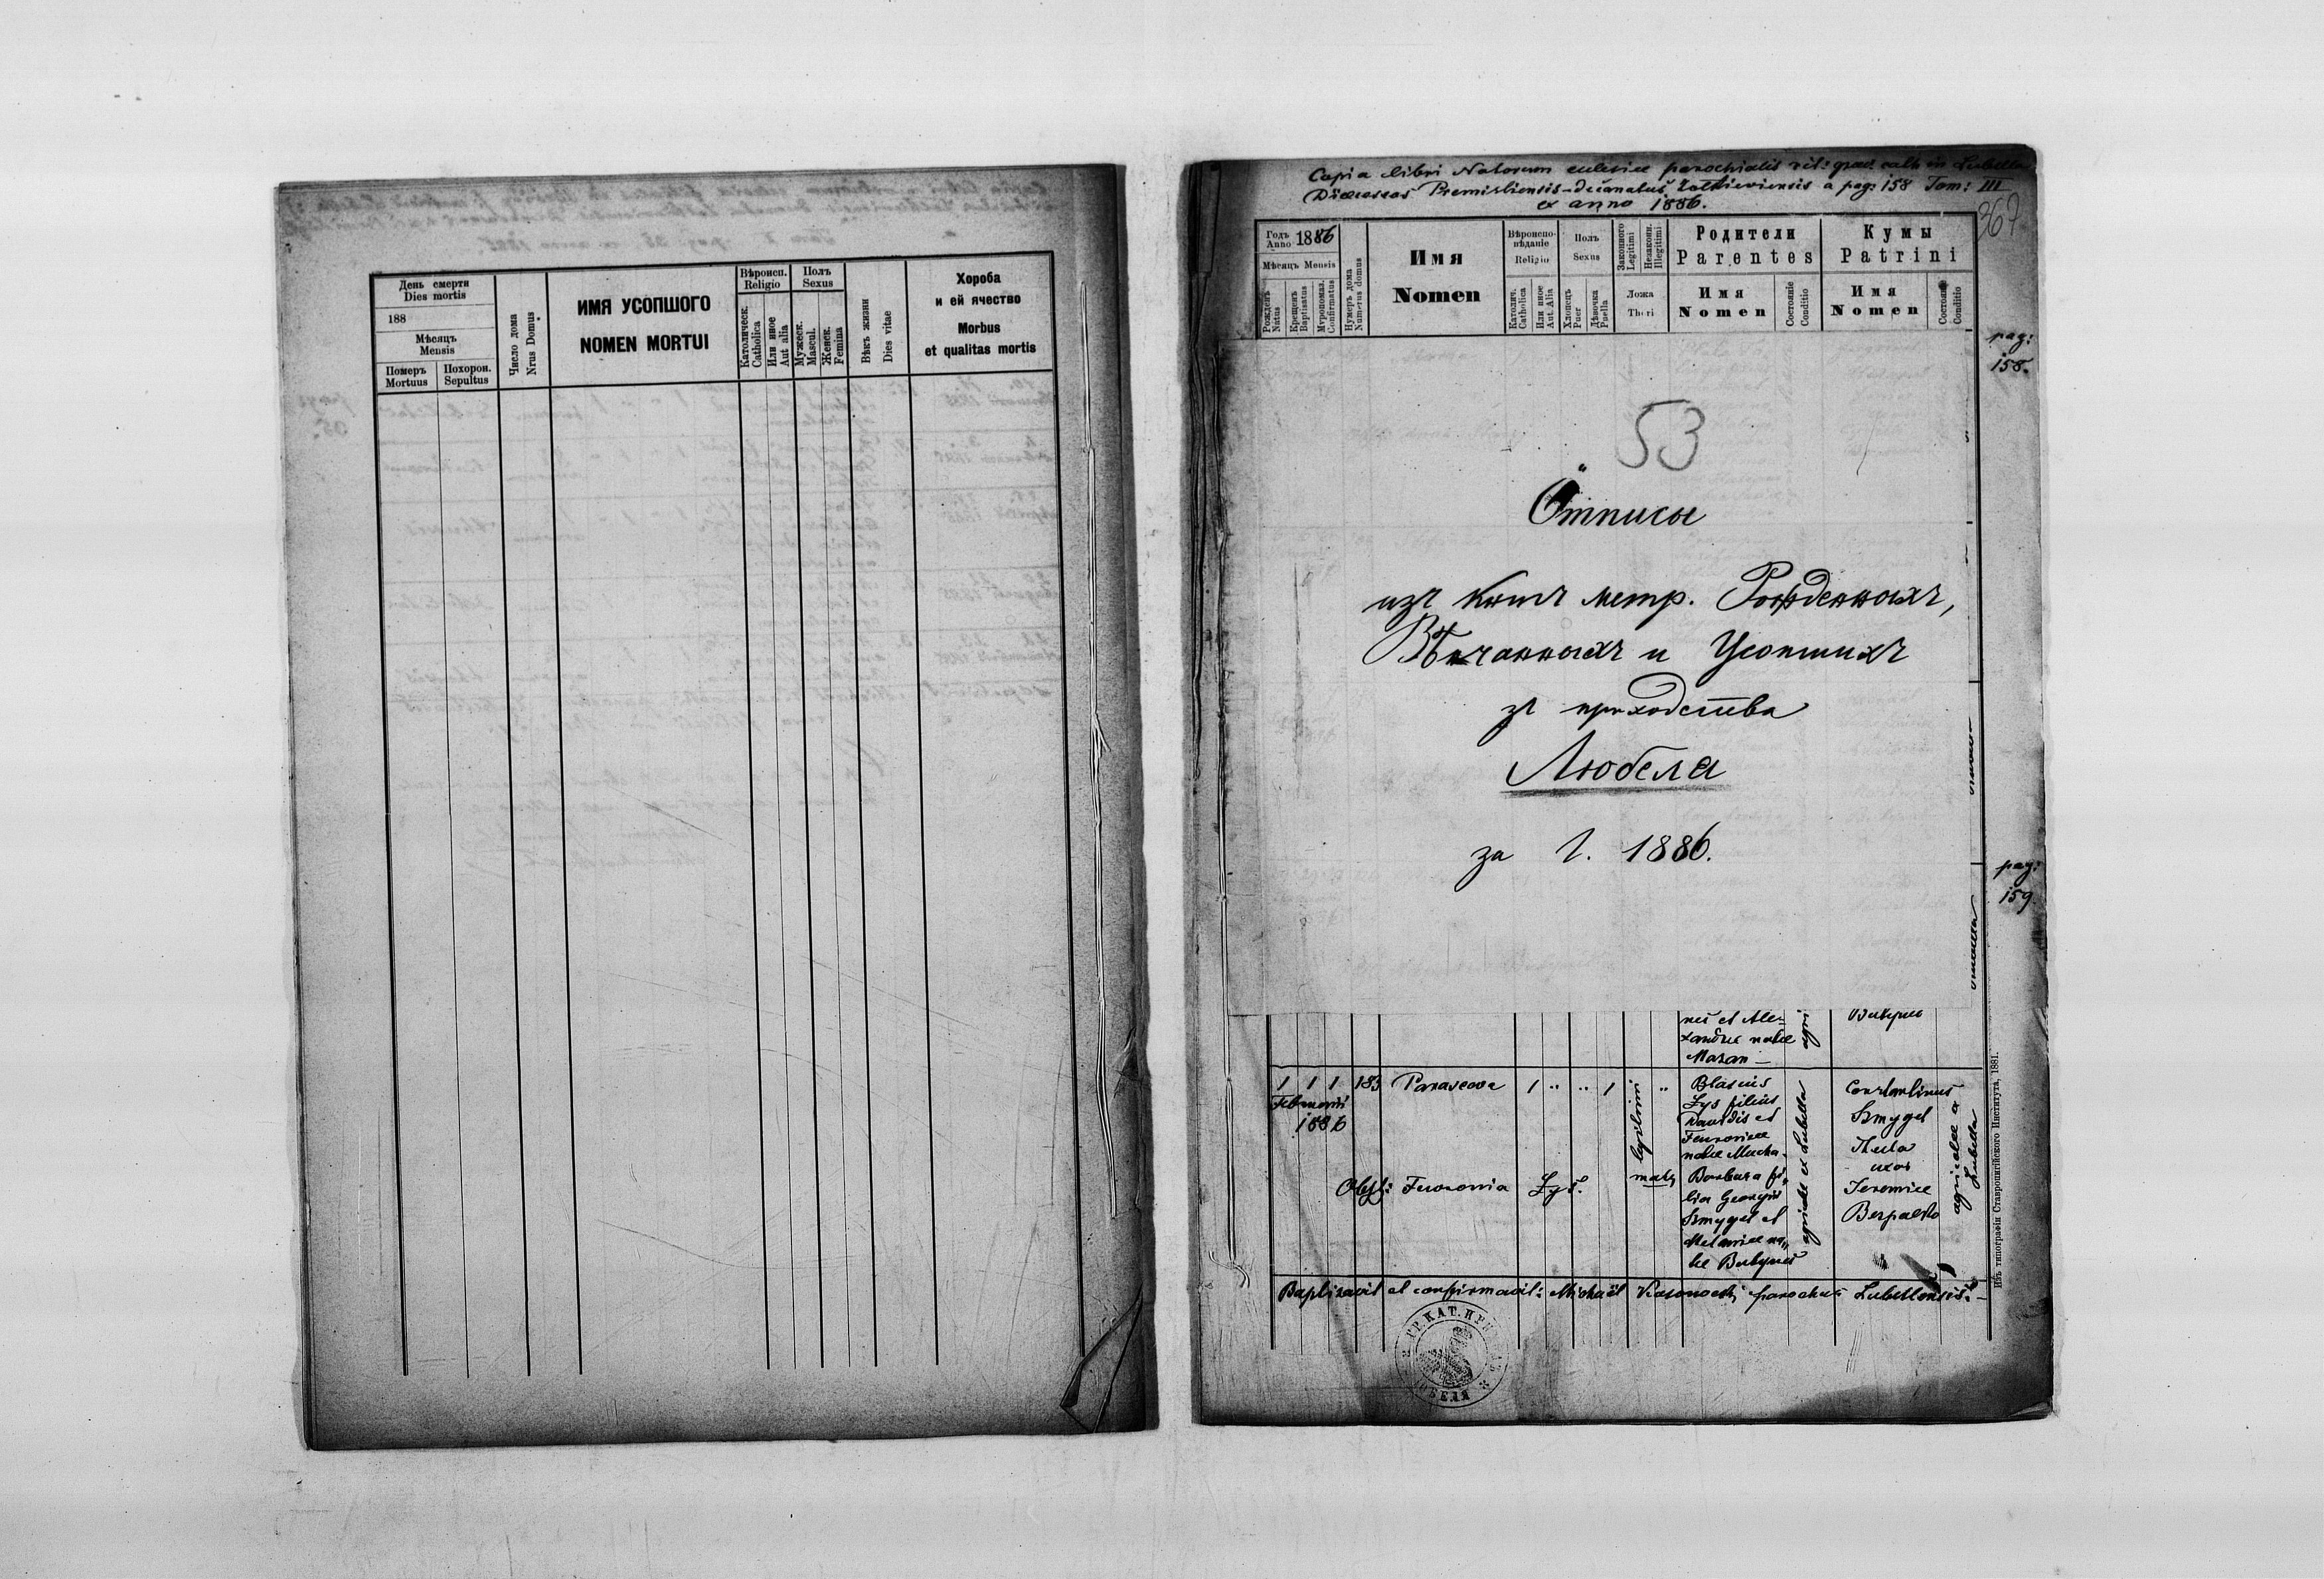 День смерти
Dies mortis
188
Мѣсяцъ
Mensis
Померъ
Mortuus
Похорон.
Sepultus
Число дома
Nrus Domus
ИМЯ УСОПШОГО
NOMEN MORTUI
Вѣроисп.
Religio
Католическ.
Catholica
Или иное
Aut alia
Полъ
Sexus
Мужеск.
Mascul.
Женск.
Femina
Вѣкъ жизни
Dies vitae
Хороба
и ей ячество
Morbus
et qualitas mortis
Copia libri Natorum ecclesiae parochialis rit: graec. cath in Lubella
Dioecesos Premisliensis - decanatus Zolkieviensis a pag: 158 Tom: III
ex anno 1886.
367
Годъ
Anno 1886
Мѣсяцъ Mensis
Рожденъ
Natus
Крещенъ
Baptisatus
Мѵропомаз.
Confirmatus
Нумеръ дома
Numerus domus
Имя
Nomen
Вѣроиспо-
вѣданіе
Religio
Католич.
Catholica
Или иное
Aut. Alia
Полъ
Sexus
Хлопецъ
Puer
Дѣвочка
Puella
Законного
Legitimi
Незаконн.
Illegitimi
Ложа
Thori
Родители
Parentes
Имя
Nomen
Состояніе
Conditio
Кумы
Patrini
Имя
Nomen
Состояніе
Conditio
pag:
158.
53
Отписы
изъ книгъ метр. Рожденныхъ,
Вѣнчанныхъ и Усопшихъ
зъ приходства
Любеля
за г. 1886.
pag:
159
nei et Ale-
xandrae natae
Mazan
1 1 1 183 Parasceva 1 " " 1 legitimi "
Februarii
1886
Blasius
Zys filius
Davidis et
Feuroniae
natae Mucha.
agricolae ex Lubella
Constantinus
Szmygel
Thecla
uxor
Jeremiae
Bezpalko
agricolae ex
Lubella
Obst: Feuronia Zys.
Barbara fi-
lia Georgii
Szmygel et
Melaniae na-
tae
Baptisavit et confirmavit: Michaël parochus Lubellensis.
ГР. КАТ. ПРИ
ЮБЕЛЯ
Изъ типографіи Ставропигійского Института, 1881.